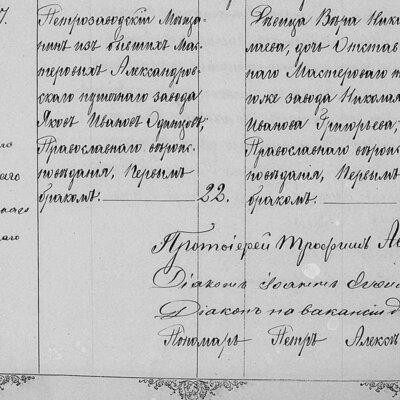 7.
Петрозаводскій Мѣща-
нинъ изъ бывшихъ Мас-
теровыхъ Александров-
скаго пушечнаго завода
Яковъ Ивановъ Одинцовъ,
Православнаго вѣроис-
повѣданія, Первымъ
бракомъ.
22.
Дѣвица Вѣра Нико
лаева, дочь Отстав
наго Мастероваго то
гоже завода Никола
Иванова Григорьева,
Православнаго вѣроис
повѣданія, Первымъ
бракомъ.
аго
Протоіерей Трофимъ
Діаконъ Іоаннъ
Діаконъ на вакансіи
Пономарь Петръ Алекс